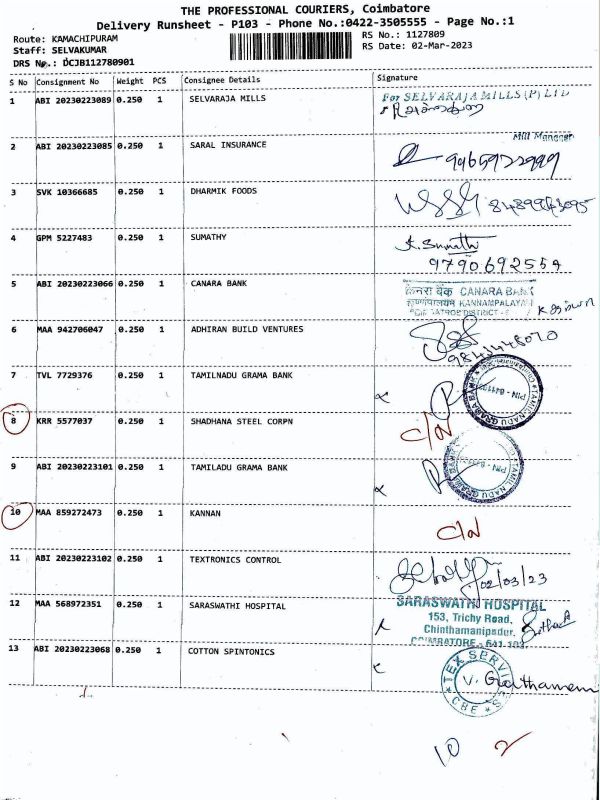 THE PROFESSIONAL COURIERS, Coimbatore
Delivery Runsheet - P103 - Phone No.:0422-3505555 - Page No.:1
Route: KAMACHIPURAM
RS No.: 1127809
Staff: SELVAKUMAR
RS Date: 02-Mar-2023
DRS No.: DCJB112780901
S No Consignment No Weight PCS Consignee Details Signature
1 ABI 20230223089 0.250 1 SELVARAJA MILLS For SELVARAJA MILLS (P) LTD
Mill Manager
2 ABI 20230223085 0.250 1 SARAL INSURANCE
3 SVK 10366685 0.250 1 DHARMIK FOODS
4 GPM 5227483 0.250 1 SUMATHY K. Sumathi
9790692554
5 ABI 20230223066 0.250 1 CANARA BANK केनरा बैंक CANARA BANK
KANNAMPALAYAM
6 MAA 942706047 0.250 1 ADHIRAN BUILD VENTURES
7 TVL 7729376 0.250 1 TAMILNADU GRAMA BANK TAMIL NADU GRAMA BANK
8 KRR 5577037 0.250 1 SHADHANA STEEL CORPN C/N
9 ABI 20230223101 0.250 1 TAMILADU GRAMA BANK TAMIL NADU GRAMA BANK
10 MAA 859272473 0.250 1 KANNAN C/N
11 ABI 20230223102 0.250 1 TEXTRONICS CONTROL 02/03/23
12 MAA 568972351 0.250 1 SARASWATHI HOSPITAL SARASWATHI HOSPITAL
153, Trichy Road,
Chinthamanipudur,
COIMBATORE - 641 103
13 ABI 20230223068 0.250 1 COTTON SPINTONICS TEX SERVICES
CBE
10 2